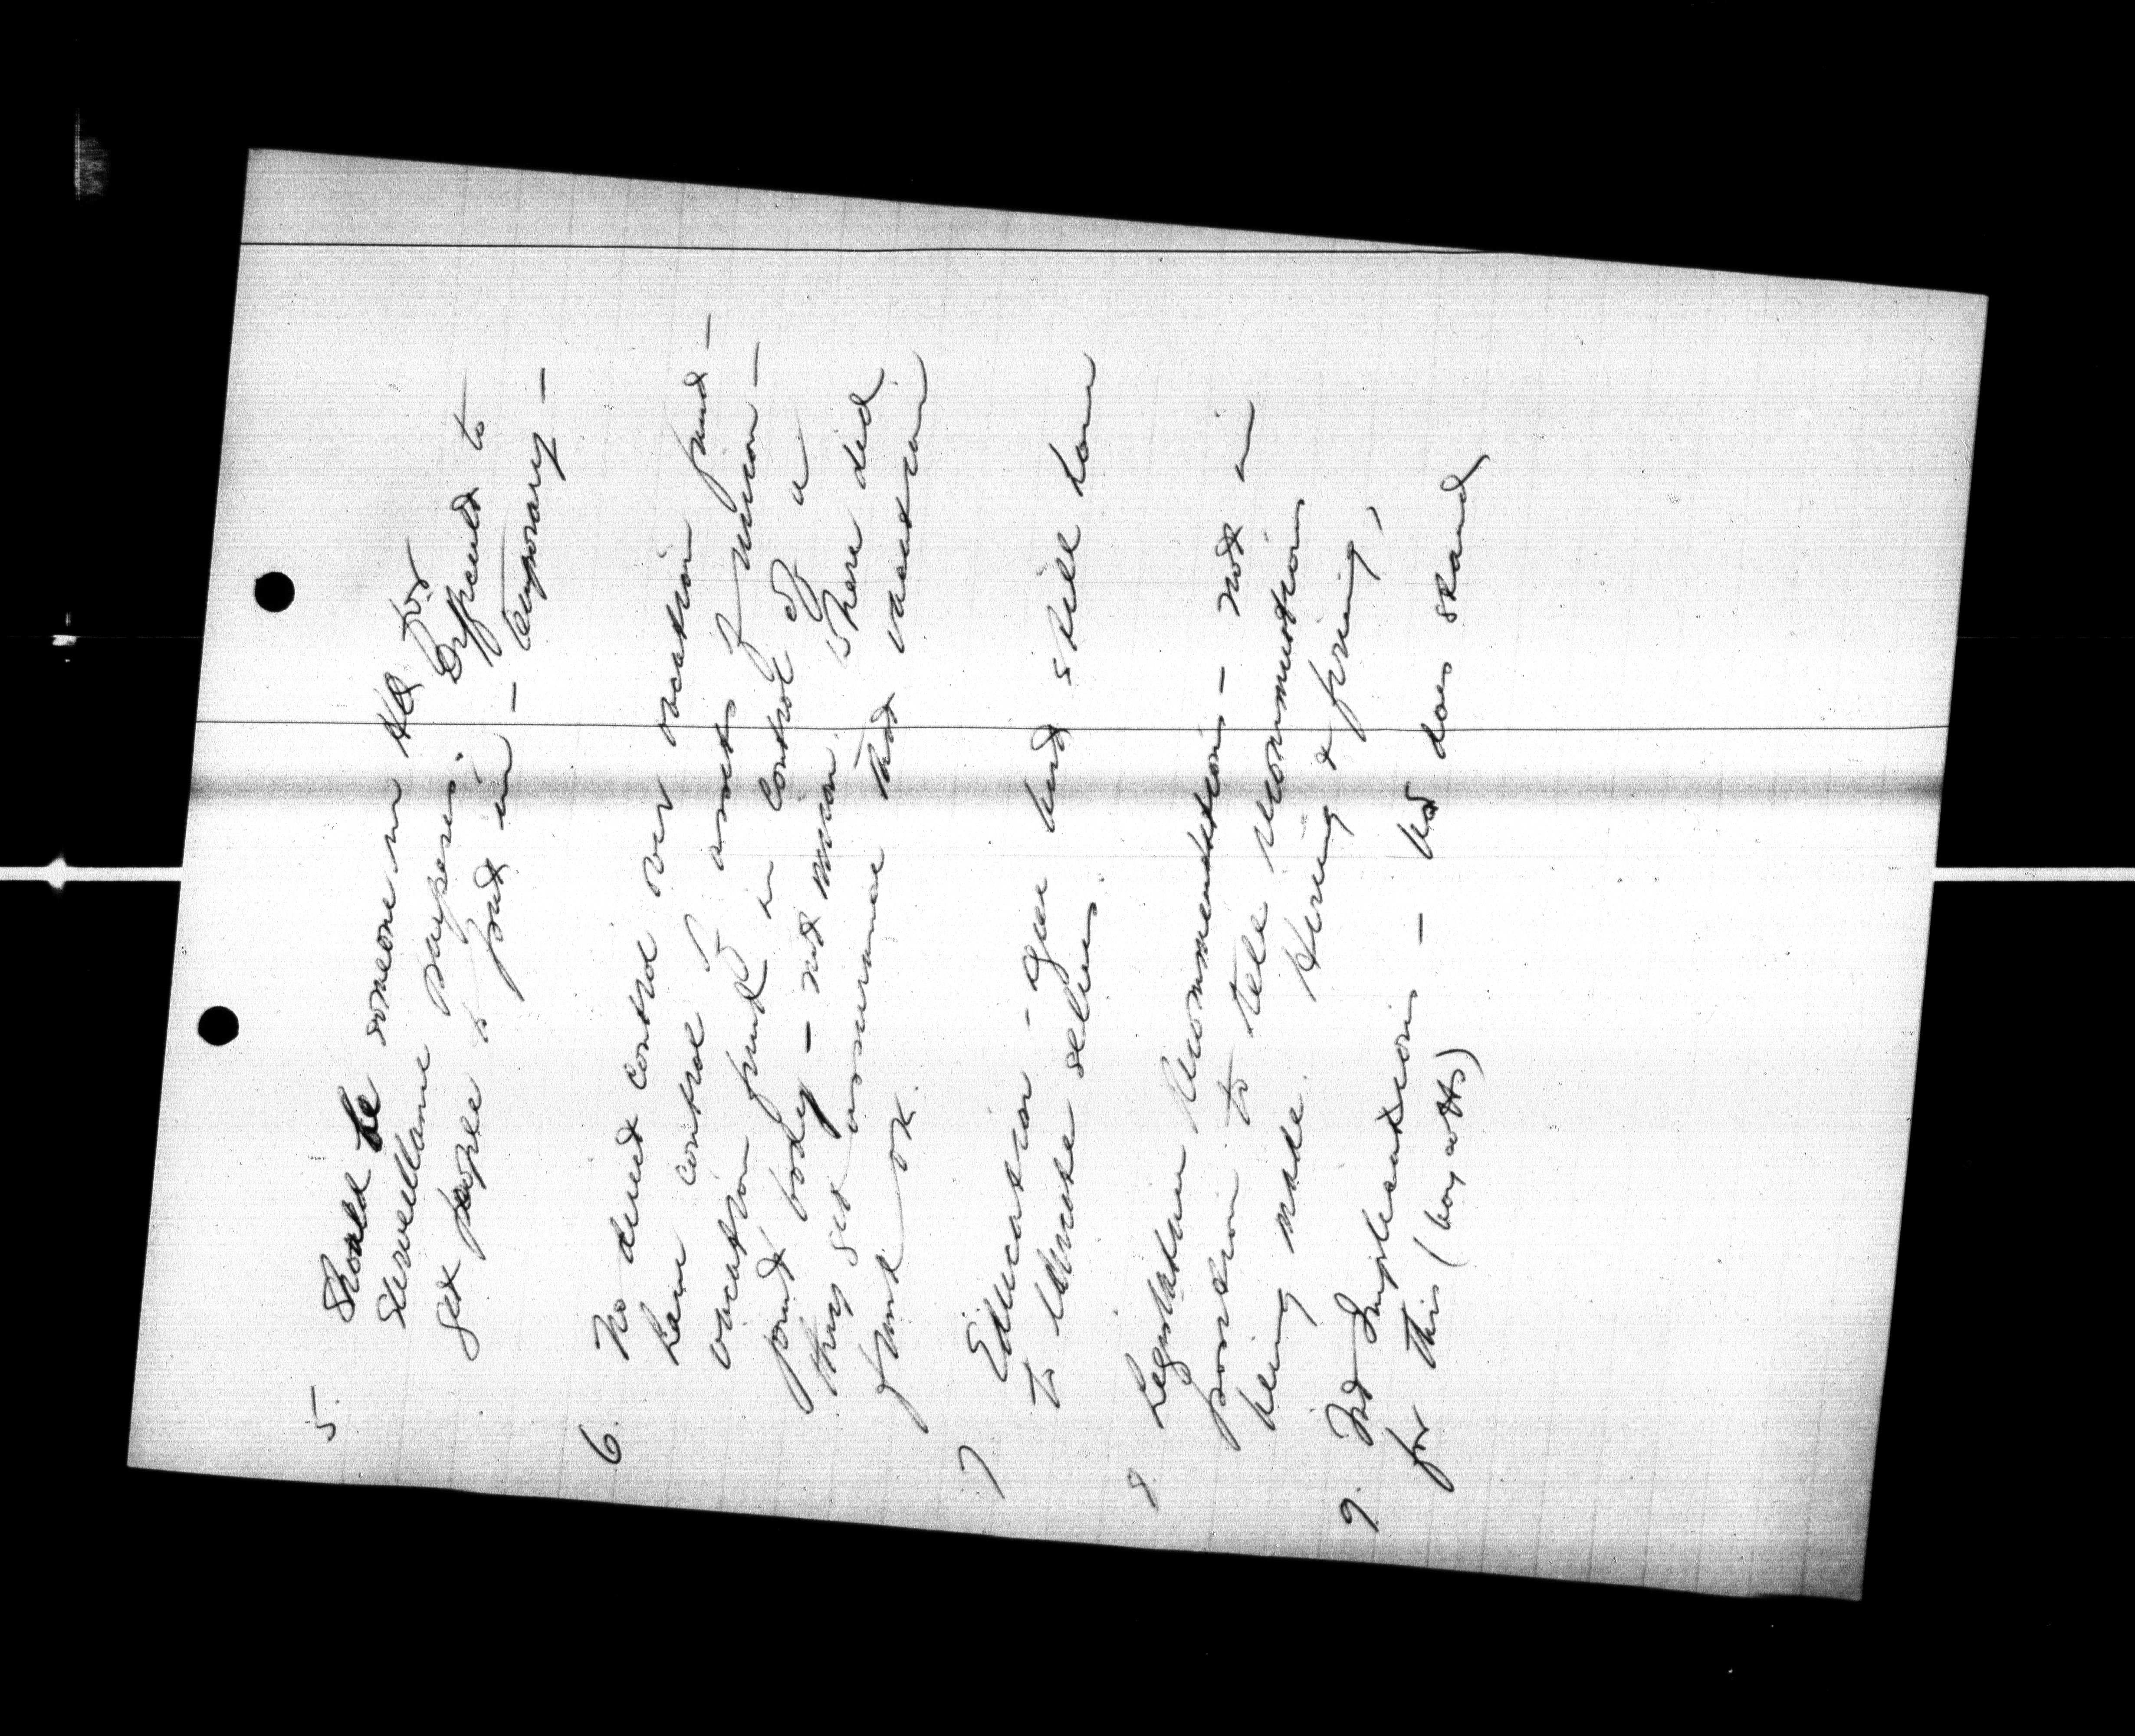 5. Should be someone in HQ for
surveillance purposes. Difficult to
get people to found in – temporary –
6. No direct control over vacation fund –
have control of assets of union –
vacation fund in control of a
joint body – not union. Where did
they get assurance that vacation
fund OK.
7. Education – give but still have
to educate selves.
8. Legislation Recommendations – not in
position to tell recommendations
being made. Hiring & firing,
9. Ind Implications – UO does stand
for this (boycotts)